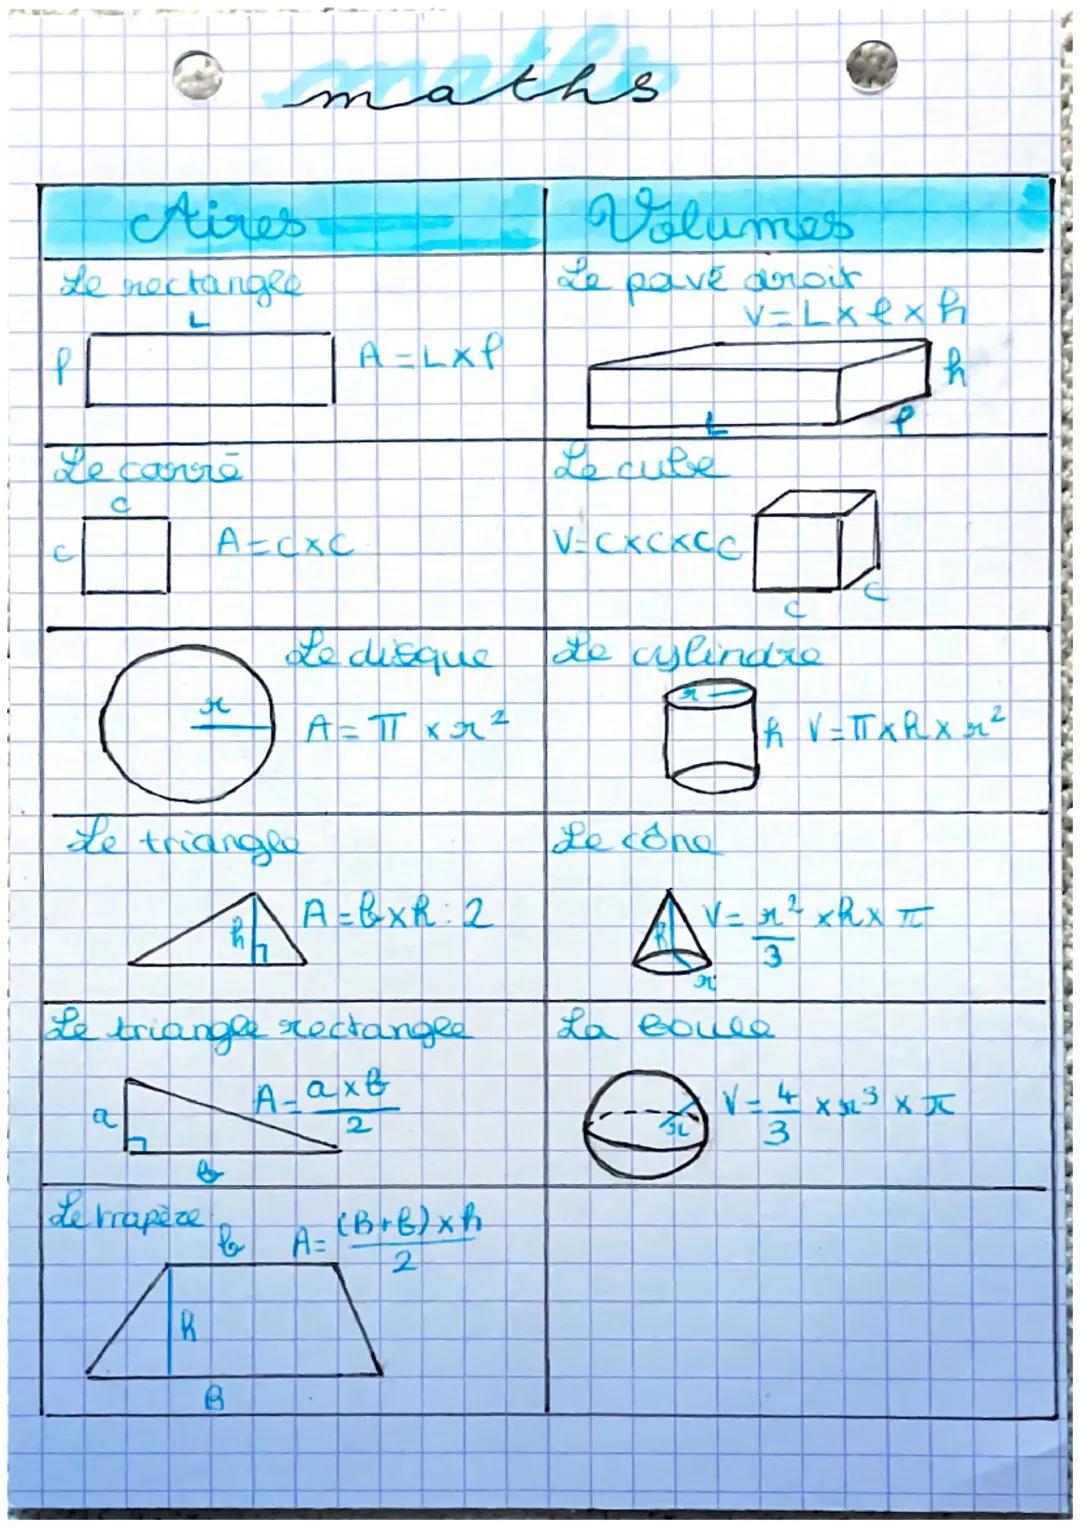 maths
Aires
Volumes
Le rectangle
L
l
A = L x l
Le pavé droit
V = L x l x h
h
L
l
Le carré
c
c
A = c x c
Le cube
V = c x c x c
c
c
c
Le disque
r
A = π x r²
Le cylindre
r
h
V = π x h x r²
Le triangle
h
A = b x h : 2
Le cône
h
r
V = r²/3 x h x π
Le triangle rectangle
a
b
A = a x b
2
La boule
r
V = 4/3 x r³ x π
Le trapèze
b
A = (B+b) x h
2
h
B